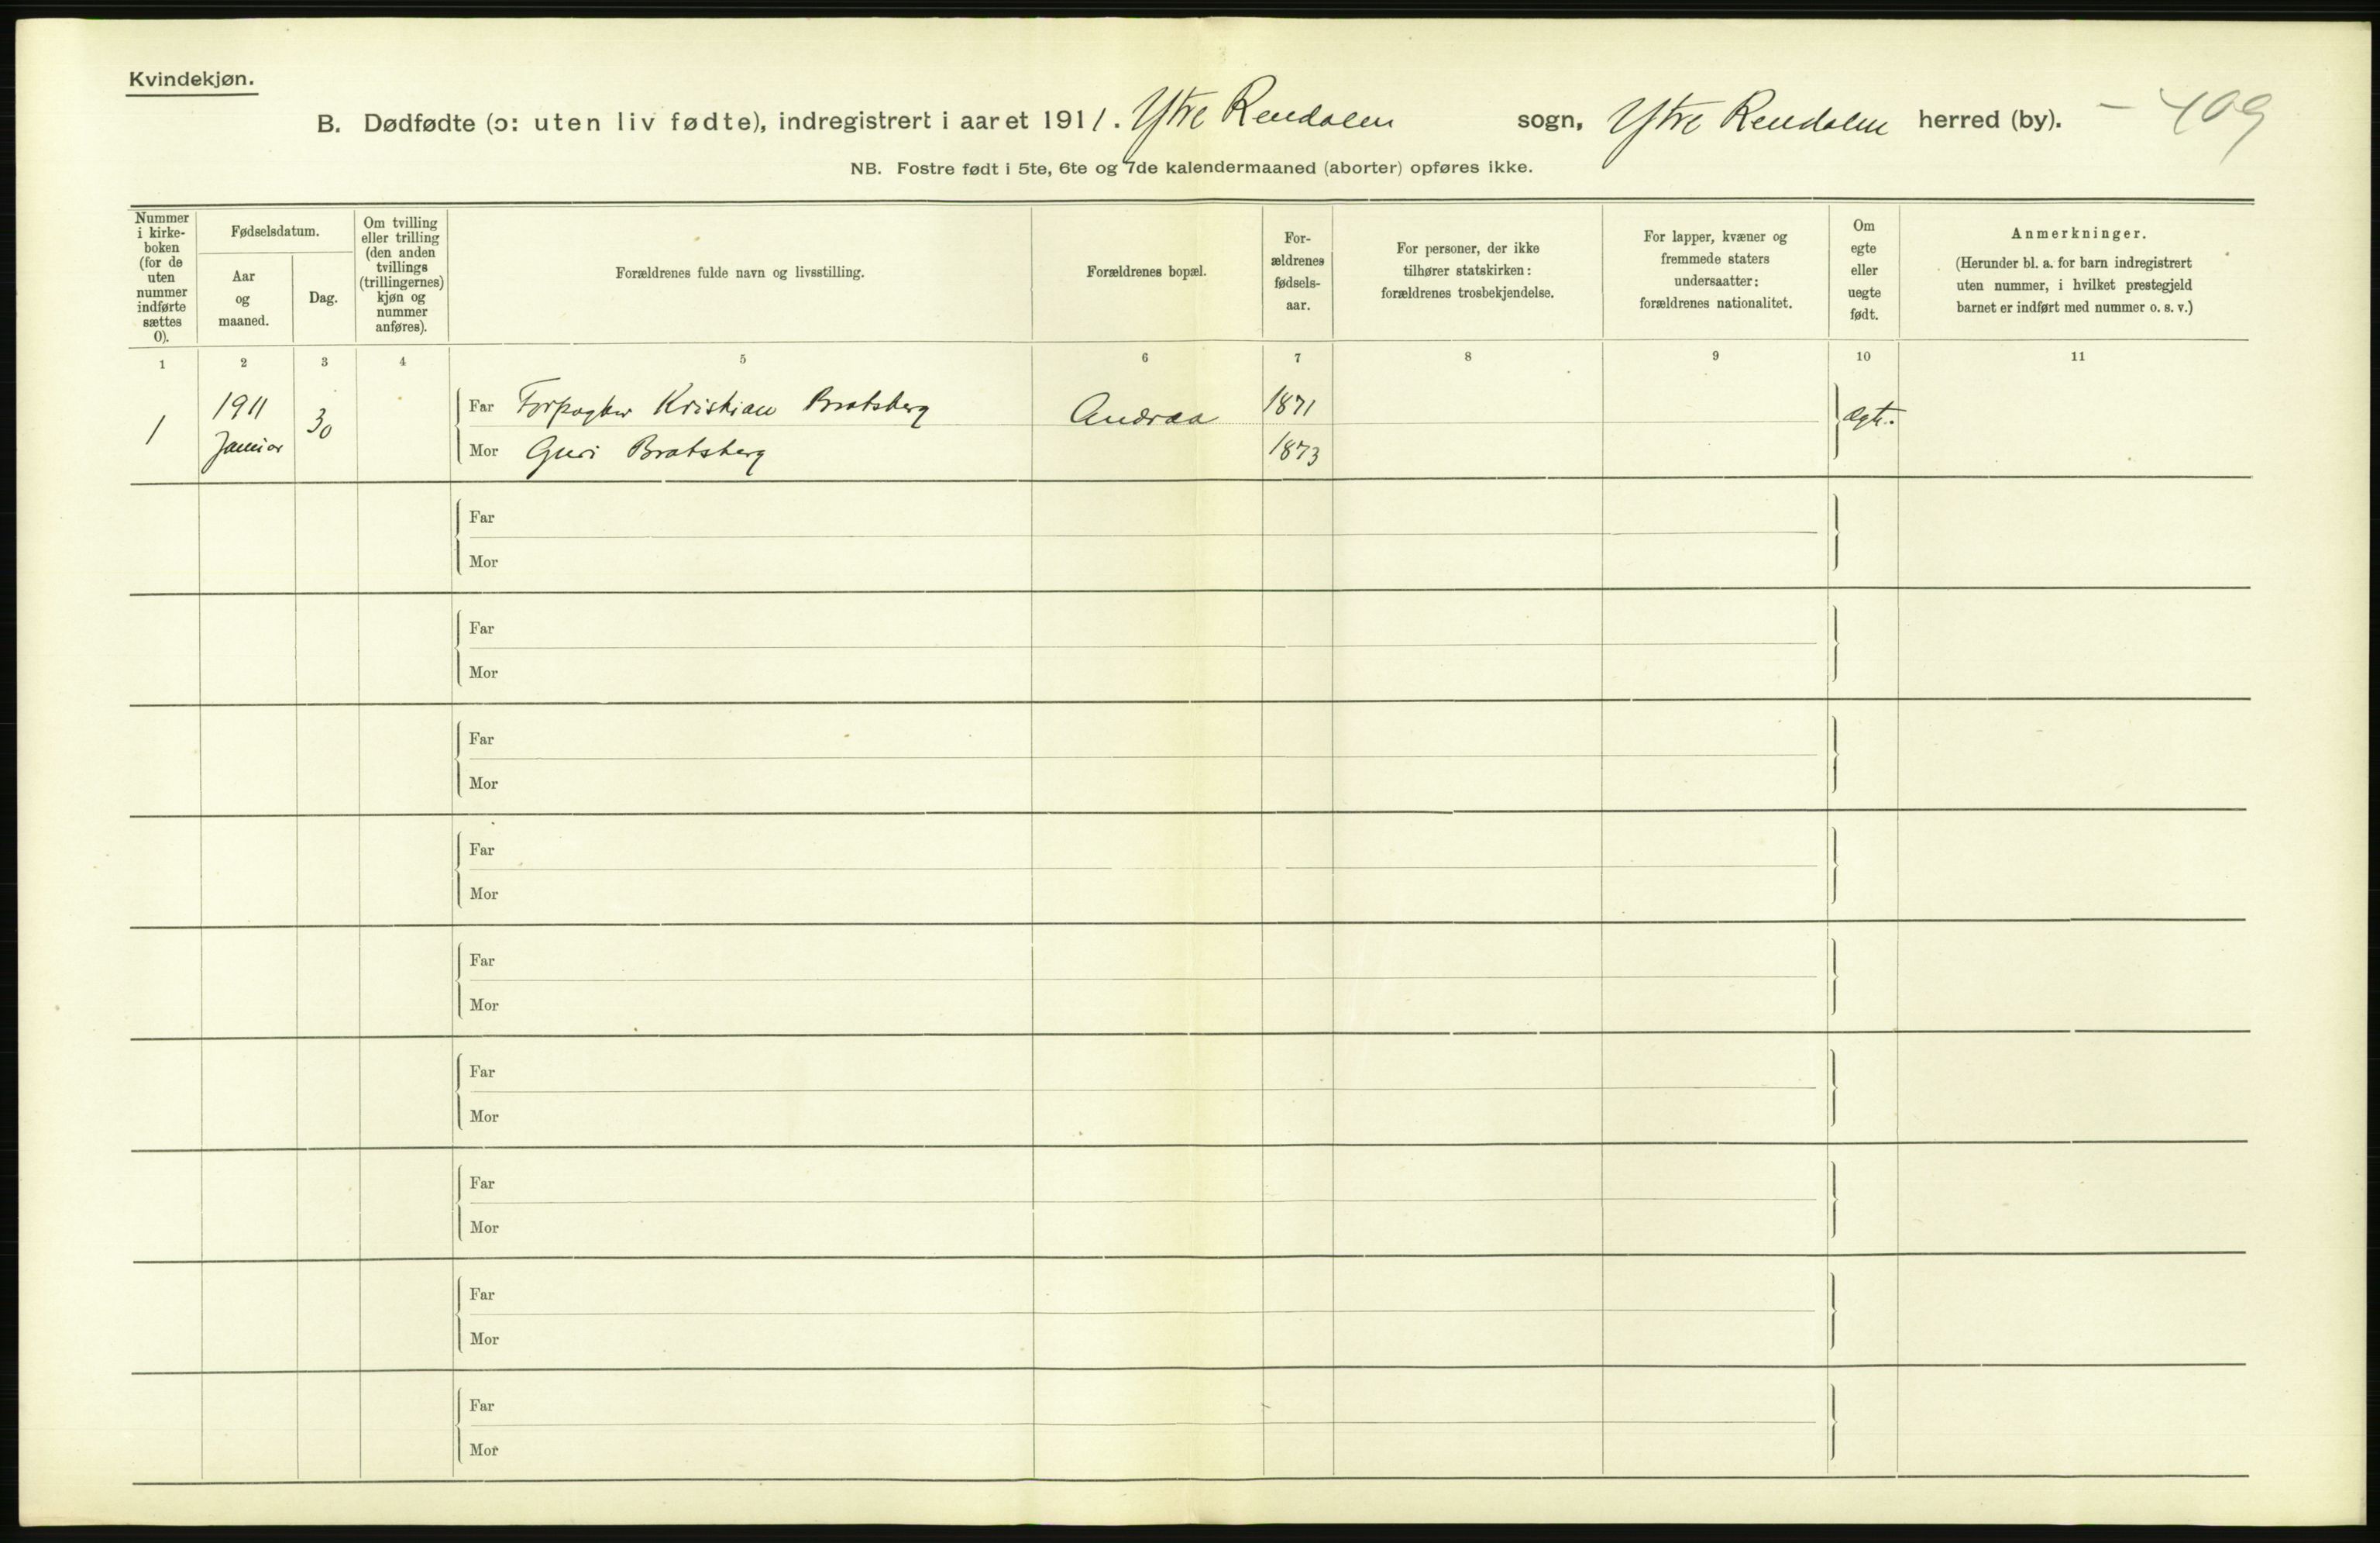 Kvindekjøn.
B. Dødfødte (ɔ: uten liv fødte), indregistrert i aaret 1911. Ytre Rendalen sogn, Ytre Rendalen herred (by). - 409
NB. Fostre født i 5te, 6te og 7de kalendermaaned (aborter) opføres ikke.
Nummer
i kirke-
boken
(for de
uten
nummer
indførte
sættes
0).
Fødselsdatum.
Aar
og
maaned.
Dag.
Om tvilling
eller trilling
(den anden
tvillings
(trillingernes)
kjøn og
nummer
anføres).
Forældrenes fulde navn og livsstilling.
Forældrenes bopæl.
For-
ældrenes
fødsels-
aar.
For personer, der ikke
tilhører statskirken:
forældrenes trosbekjendelse.
For lapper, kvæner og
fremmede staters
undersaatter:
forældrenes nationalitet.
Om
egte
eller
uegte
født.
Anmerkninger.
(Herunder bl. a. for barn indregistrert
uten nummer, i hvilket prestegjeld
barnet er indført med nummer o. s. v.)
1 2 3 4 5 6 7 8 9 10 11
1 1911 Januar 30
Far Forpagter Kristian Bratsberg Andraa 1871 ægte.
Mor Guri Bratsberg 1873
Far
Mor
Far
Mor
Far
Mor
Far
Mor
Far
Mor
Far
Mor
Far
Mor
Far
Mor
Far
Mor